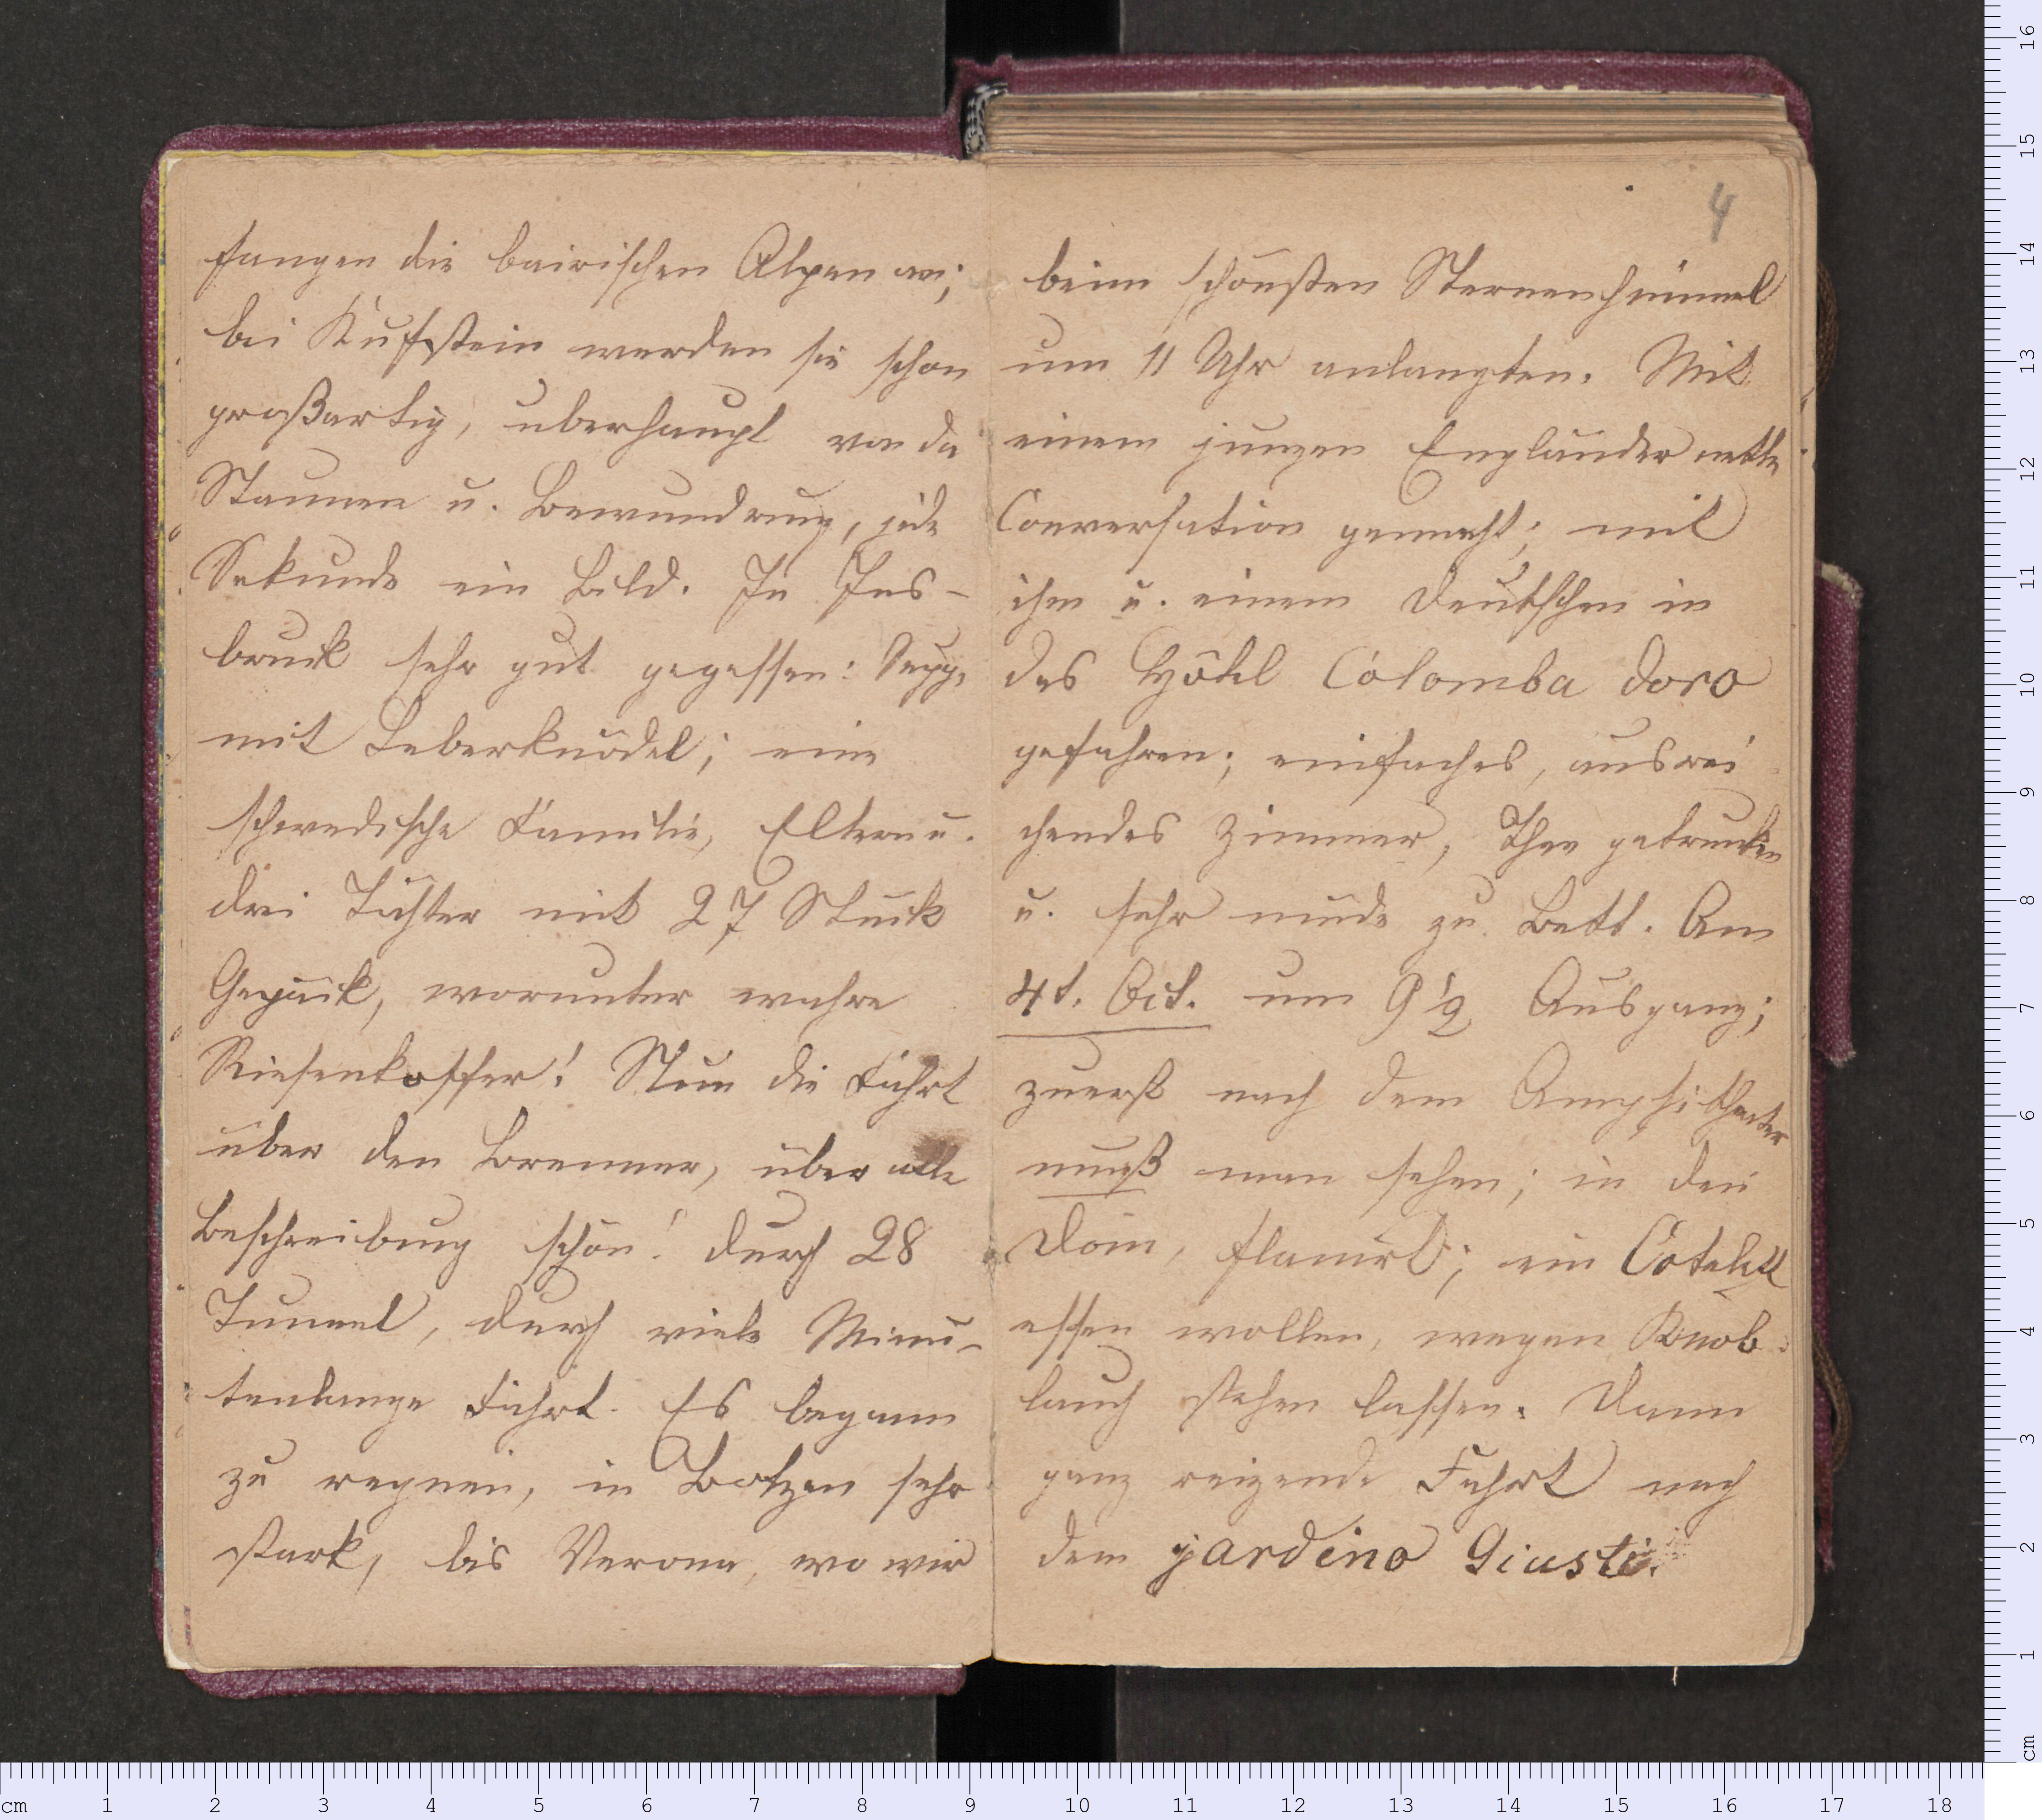 fangen die bairischen Alpen an;
bei Kufstein werden sie schon
großartig, überhaupt von da
Staunen u. Bewundrung, jede
Sekunde ein Bild. In Ins-
bruck sehr gut gegessen: Suppe
mit Leberknödel; eine
schwedische Familie, Eltern u.
drei Töchter mit 27 Stück
Gepäck, worunter wahre
Riesenkoffer! Nun die Fahrt
über den Brenner, über alle
Beschreibung schön! durch 28
Tunnel, durch viele Minu-
tenlange Fahrt. Es begann
zu regnen, in Botzen sehr
stark, bis Verona, wo wir
4
beim schönsten Sternenhimmel
um 11 Uhr anlangten. Mit
einem jungen Engländer nette
Conversation gemacht; mit
ihm u. einem Deutschen in
das Hôtel Colomba doro
gefahren; einfaches, ausrei
chendes Zimmer, Thee getrunken
u. sehr müde zu Bett. Am
4t. Oct. um 9 1/2 Ausgang;
zuerst nach dem Amphitheater
muß man sehen; in den
Dom, flanirt; ein Cotelett
essen wollen, wegen Knob-
lauch stehen lassen. Dann
ganz reizende Fahrt nach
dem jardino Giusti.